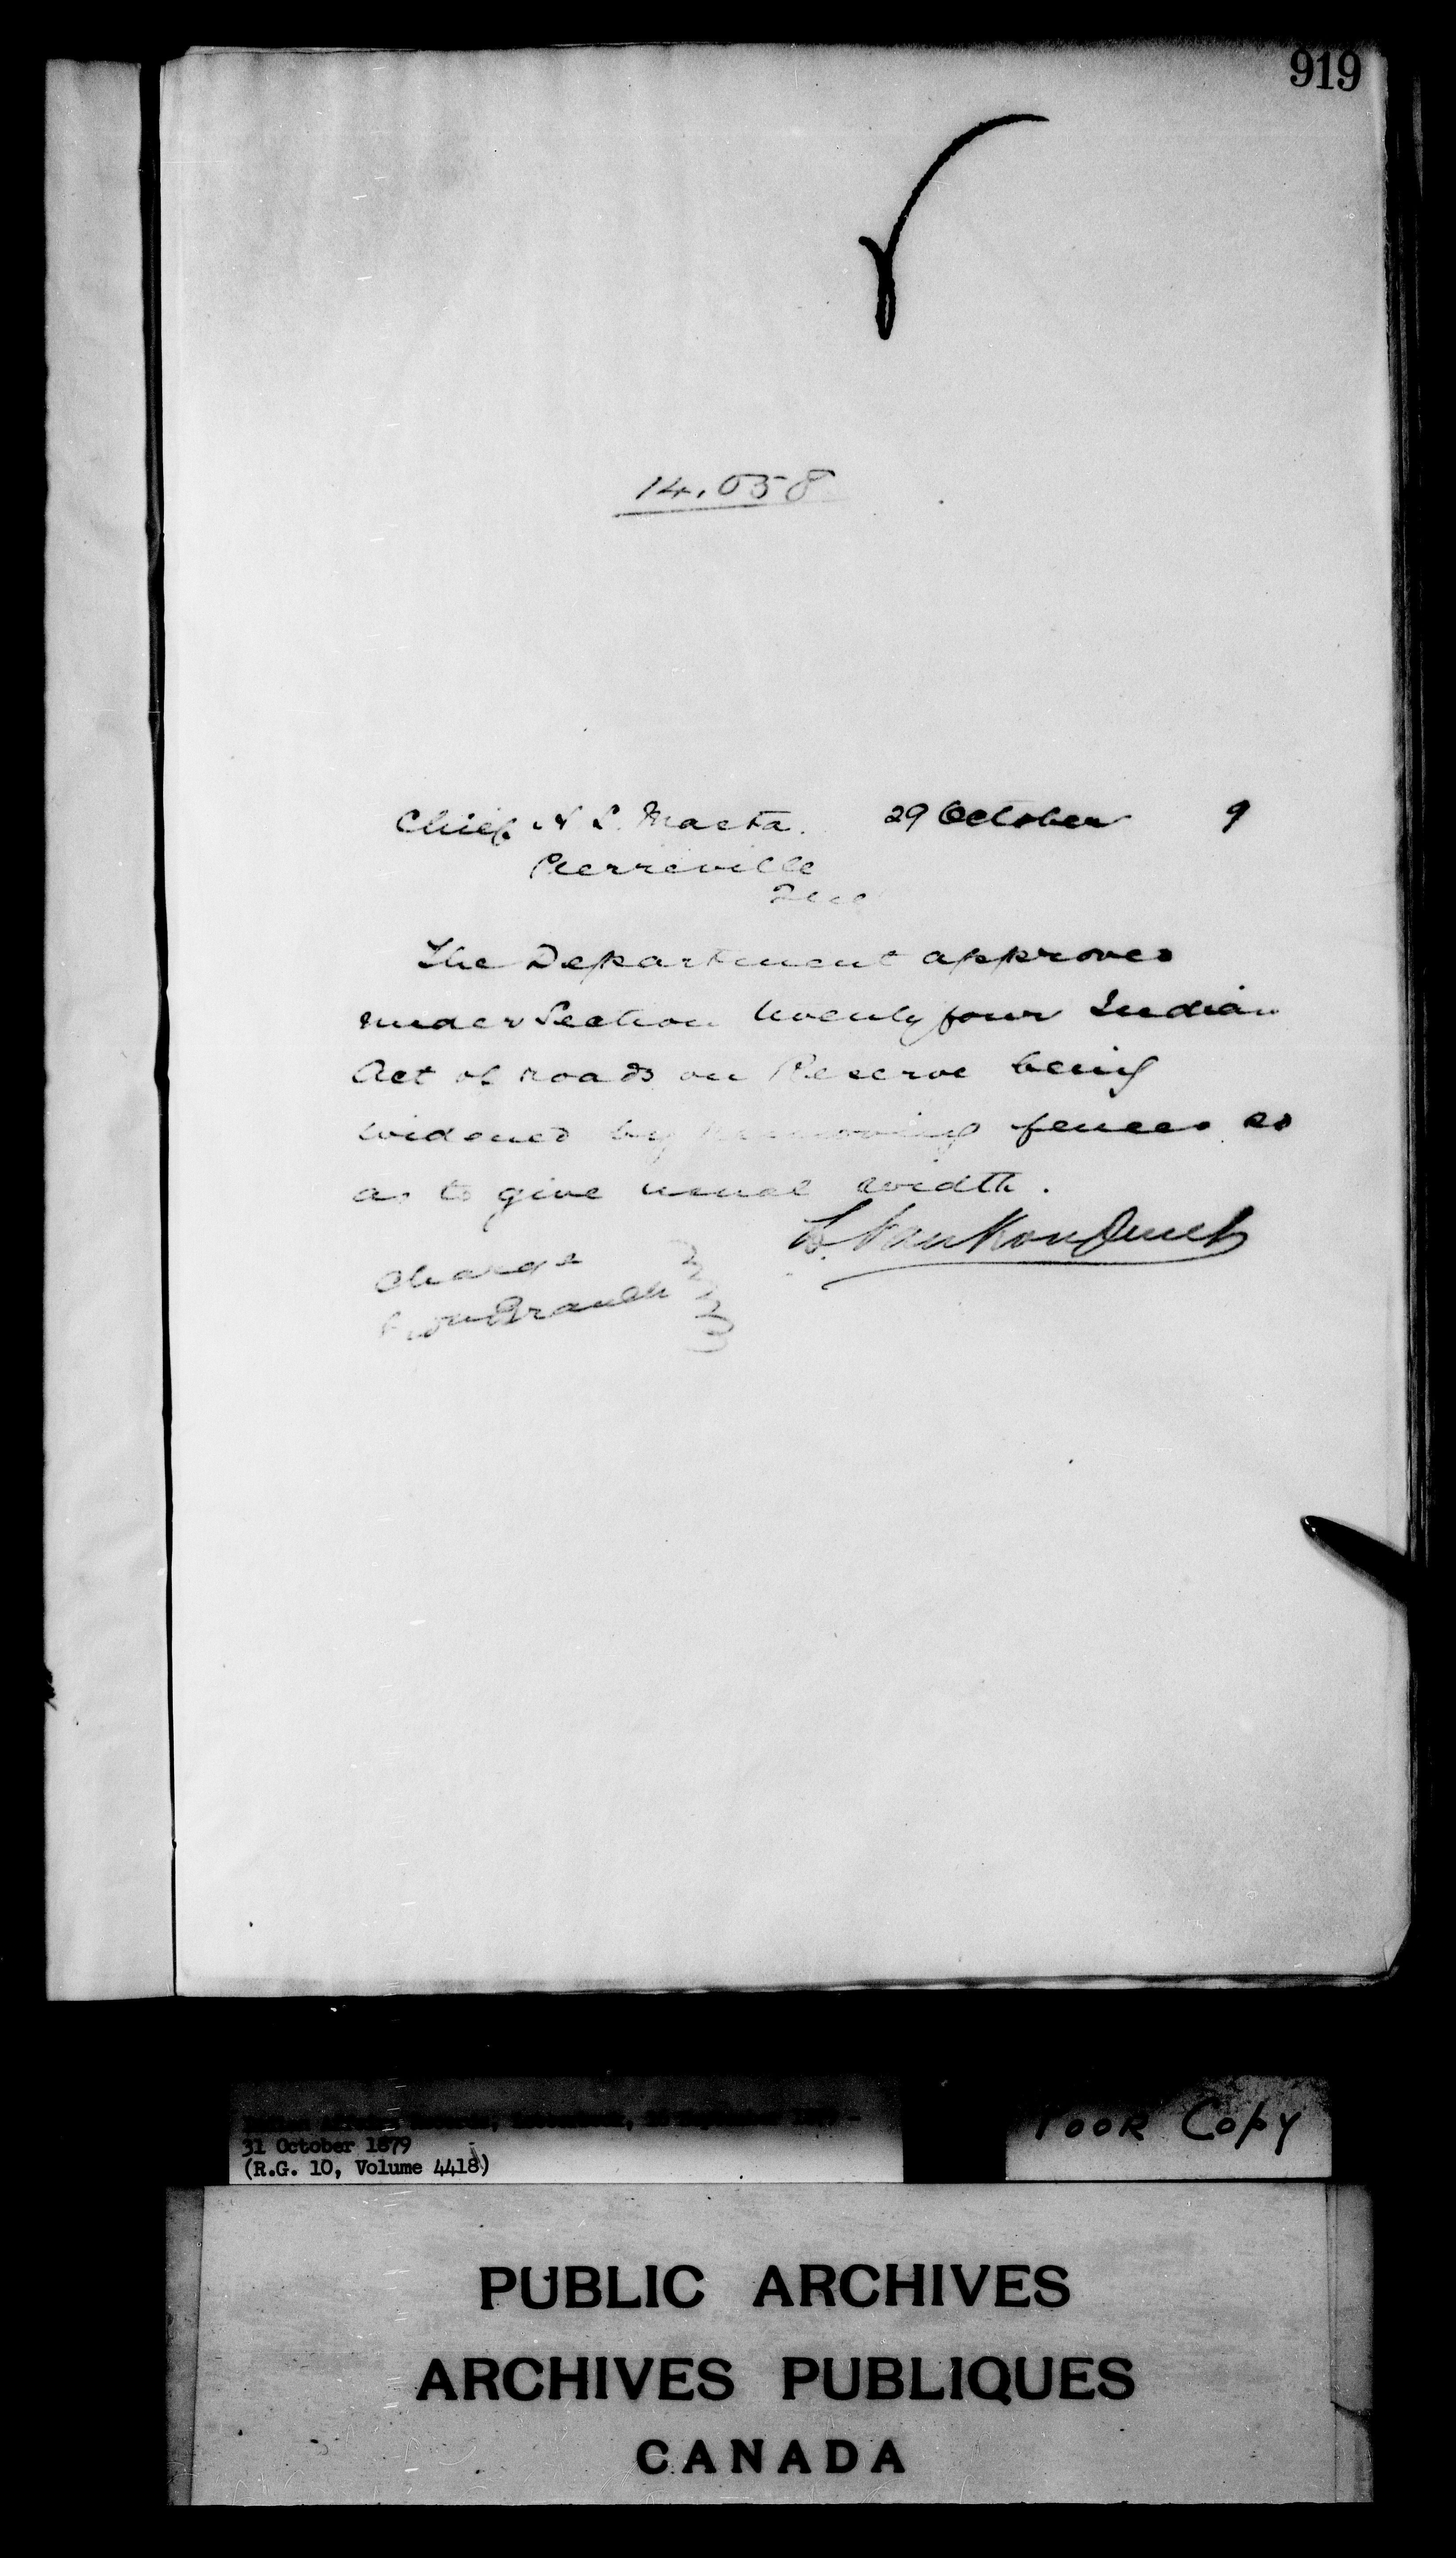 919
14,058
Chief N L. Masta. 29 October 9
Pierreville
Que
The Department approves
under Section twenty four Indian
Act of roads on Reserve being
widened by removing fences so
as to give usual width.
L. VanKoughnet
Charge
Branch
Indian Affairs Records, Letterbook, September -
31 October 1879
(R.G. 10, Volume 4418)
Poor Copy
PUBLIC ARCHIVES
ARCHIVES PUBLIQUES
CANADA